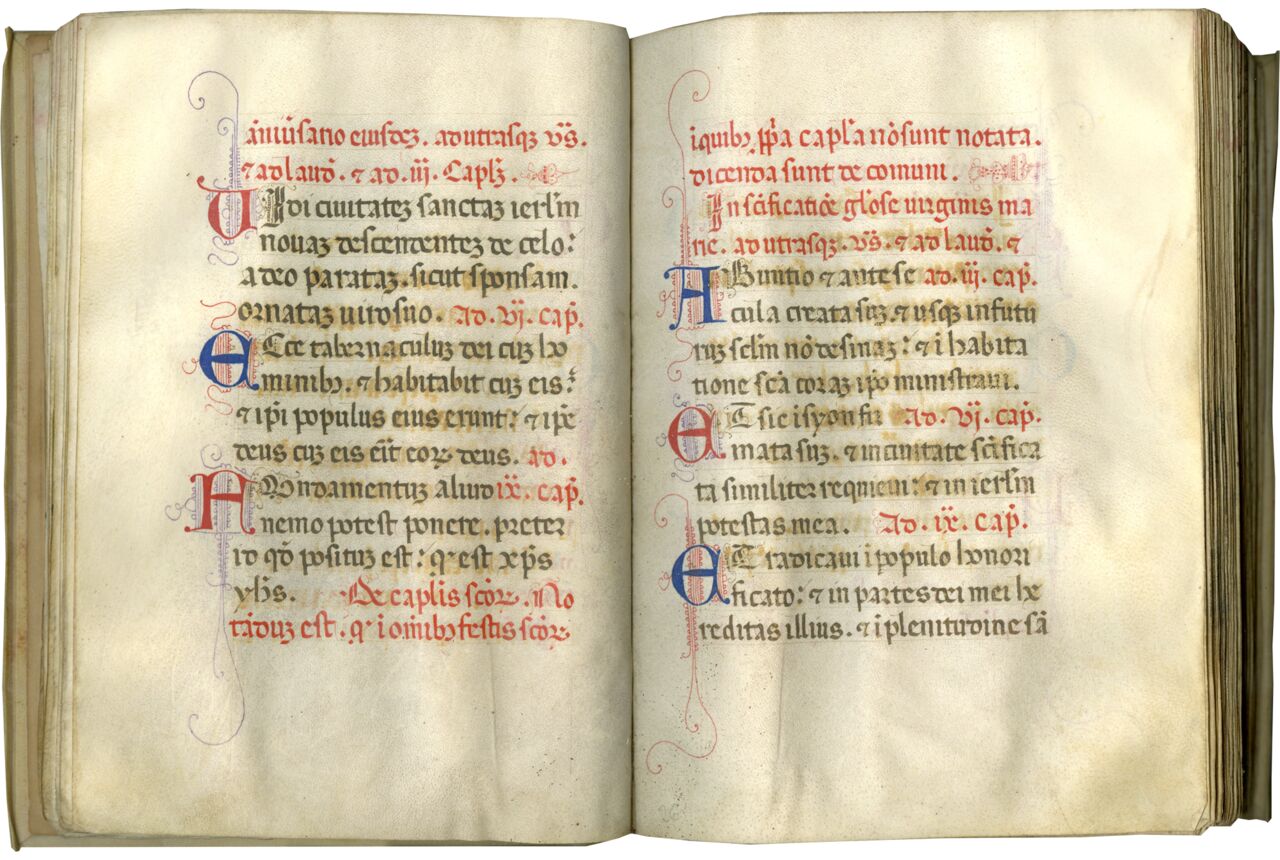 ãniũsario eiusdeʒ. ad utrasqʒ v̄s̄.
⁊ ad laud̃. ⁊ ad. iij. Caplʒ.
Uidi ciuitateʒ sanctaʒ ierl̃m
nouaʒ descendenteʒ de celo:
a deo parataʒ. sicut sponsam
ornataʒ uiro suo. Ad. Vj. cap̃.
ECce tabernaculuʒ dei cuʒ ho
minibʒ. ⁊ habitabit cuʒ eis:
⁊ ip̃i populus eius erunt: ⁊ ip̃e
deus cuʒ eis erit eoꝝ deus. ad.
FUndamentuʒ aliud ix. cap̃.
nemo potest ponere. preter
id qd̃ posituʒ est: q̃ est xp̃s
yh̃s. De capl̃is sc̃oꝝ. No
tãduʒ est. q̃ i om̃ibʒ festis sc̃oꝝ
i quibʒ pp̃a capl̃a nõ sunt notata.
dicenda sunt de comuni.
In sc̃ificatiõe gl̃ose uirginis ma
rie. ad utrasqʒ. v̄s̄. ⁊ ad laud̃. ⁊
AB initio ⁊ ante se ad. iij. cap̃.
cula creata suʒ. ⁊ usqʒ in futu
ruʒ sc̃lm nõ desinaʒ: ⁊ i habita
tione sc̃a coraʒ ip̃o ministraui.
ET sic i syon fir Ad. Vj. cap̃.
mata suʒ. ⁊ in ciuitate sc̃ifica
ta similiter requieui: ⁊ in ierl̃m
potestas mea. Ad. ix. cap̃.
ET radicaui i populo honori
ficato: ⁊ in partes dei mei he
reditas illius. ⁊ i plenitudine sã